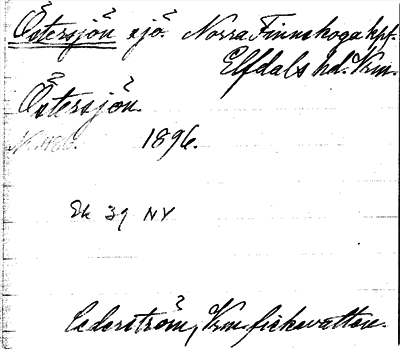 Östersjön sjö Norra Finnskoga hpf.
Elfdals hd. Vrm.
Östersjön.
1896.
Ek 39 NY
Cederström, Vrm. fiskevatten.